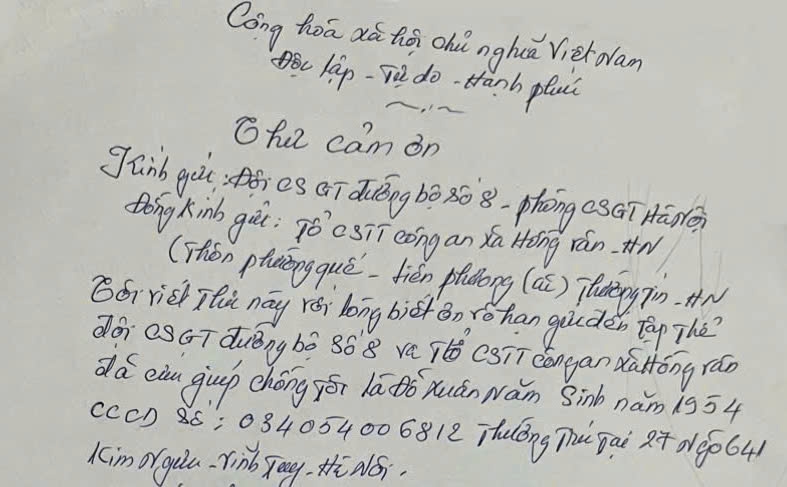 Cộng hoà xã hội chủ nghĩa Việt Nam
Độc lập - Tự do - Hạnh phúc
Thư cảm ơn
Kính gửi: Đội CSGT đường bộ số 8 - phòng CSGT Hà Nội
Đồng Kính gửi: Tổ CSTT công an xã Hồng Vân - HN
(Thôn phương quế - tiền phong (cũ) Thường Tín - HN
Tôi viết Thư này với lòng biết ơn vô hạn gửi đến Tập Thể
đội CSGT đường bộ số 8 và Tổ CSTT công an xã Hồng Vân
đã cứu giúp chồng Tôi là Đỗ Xuân Năm Sinh năm 1954
CCCD số: 034054006812 Thường Trú Tại 27 Ngõ 641
Kim Ngưu - Vĩnh Tuy - Hà Nội.